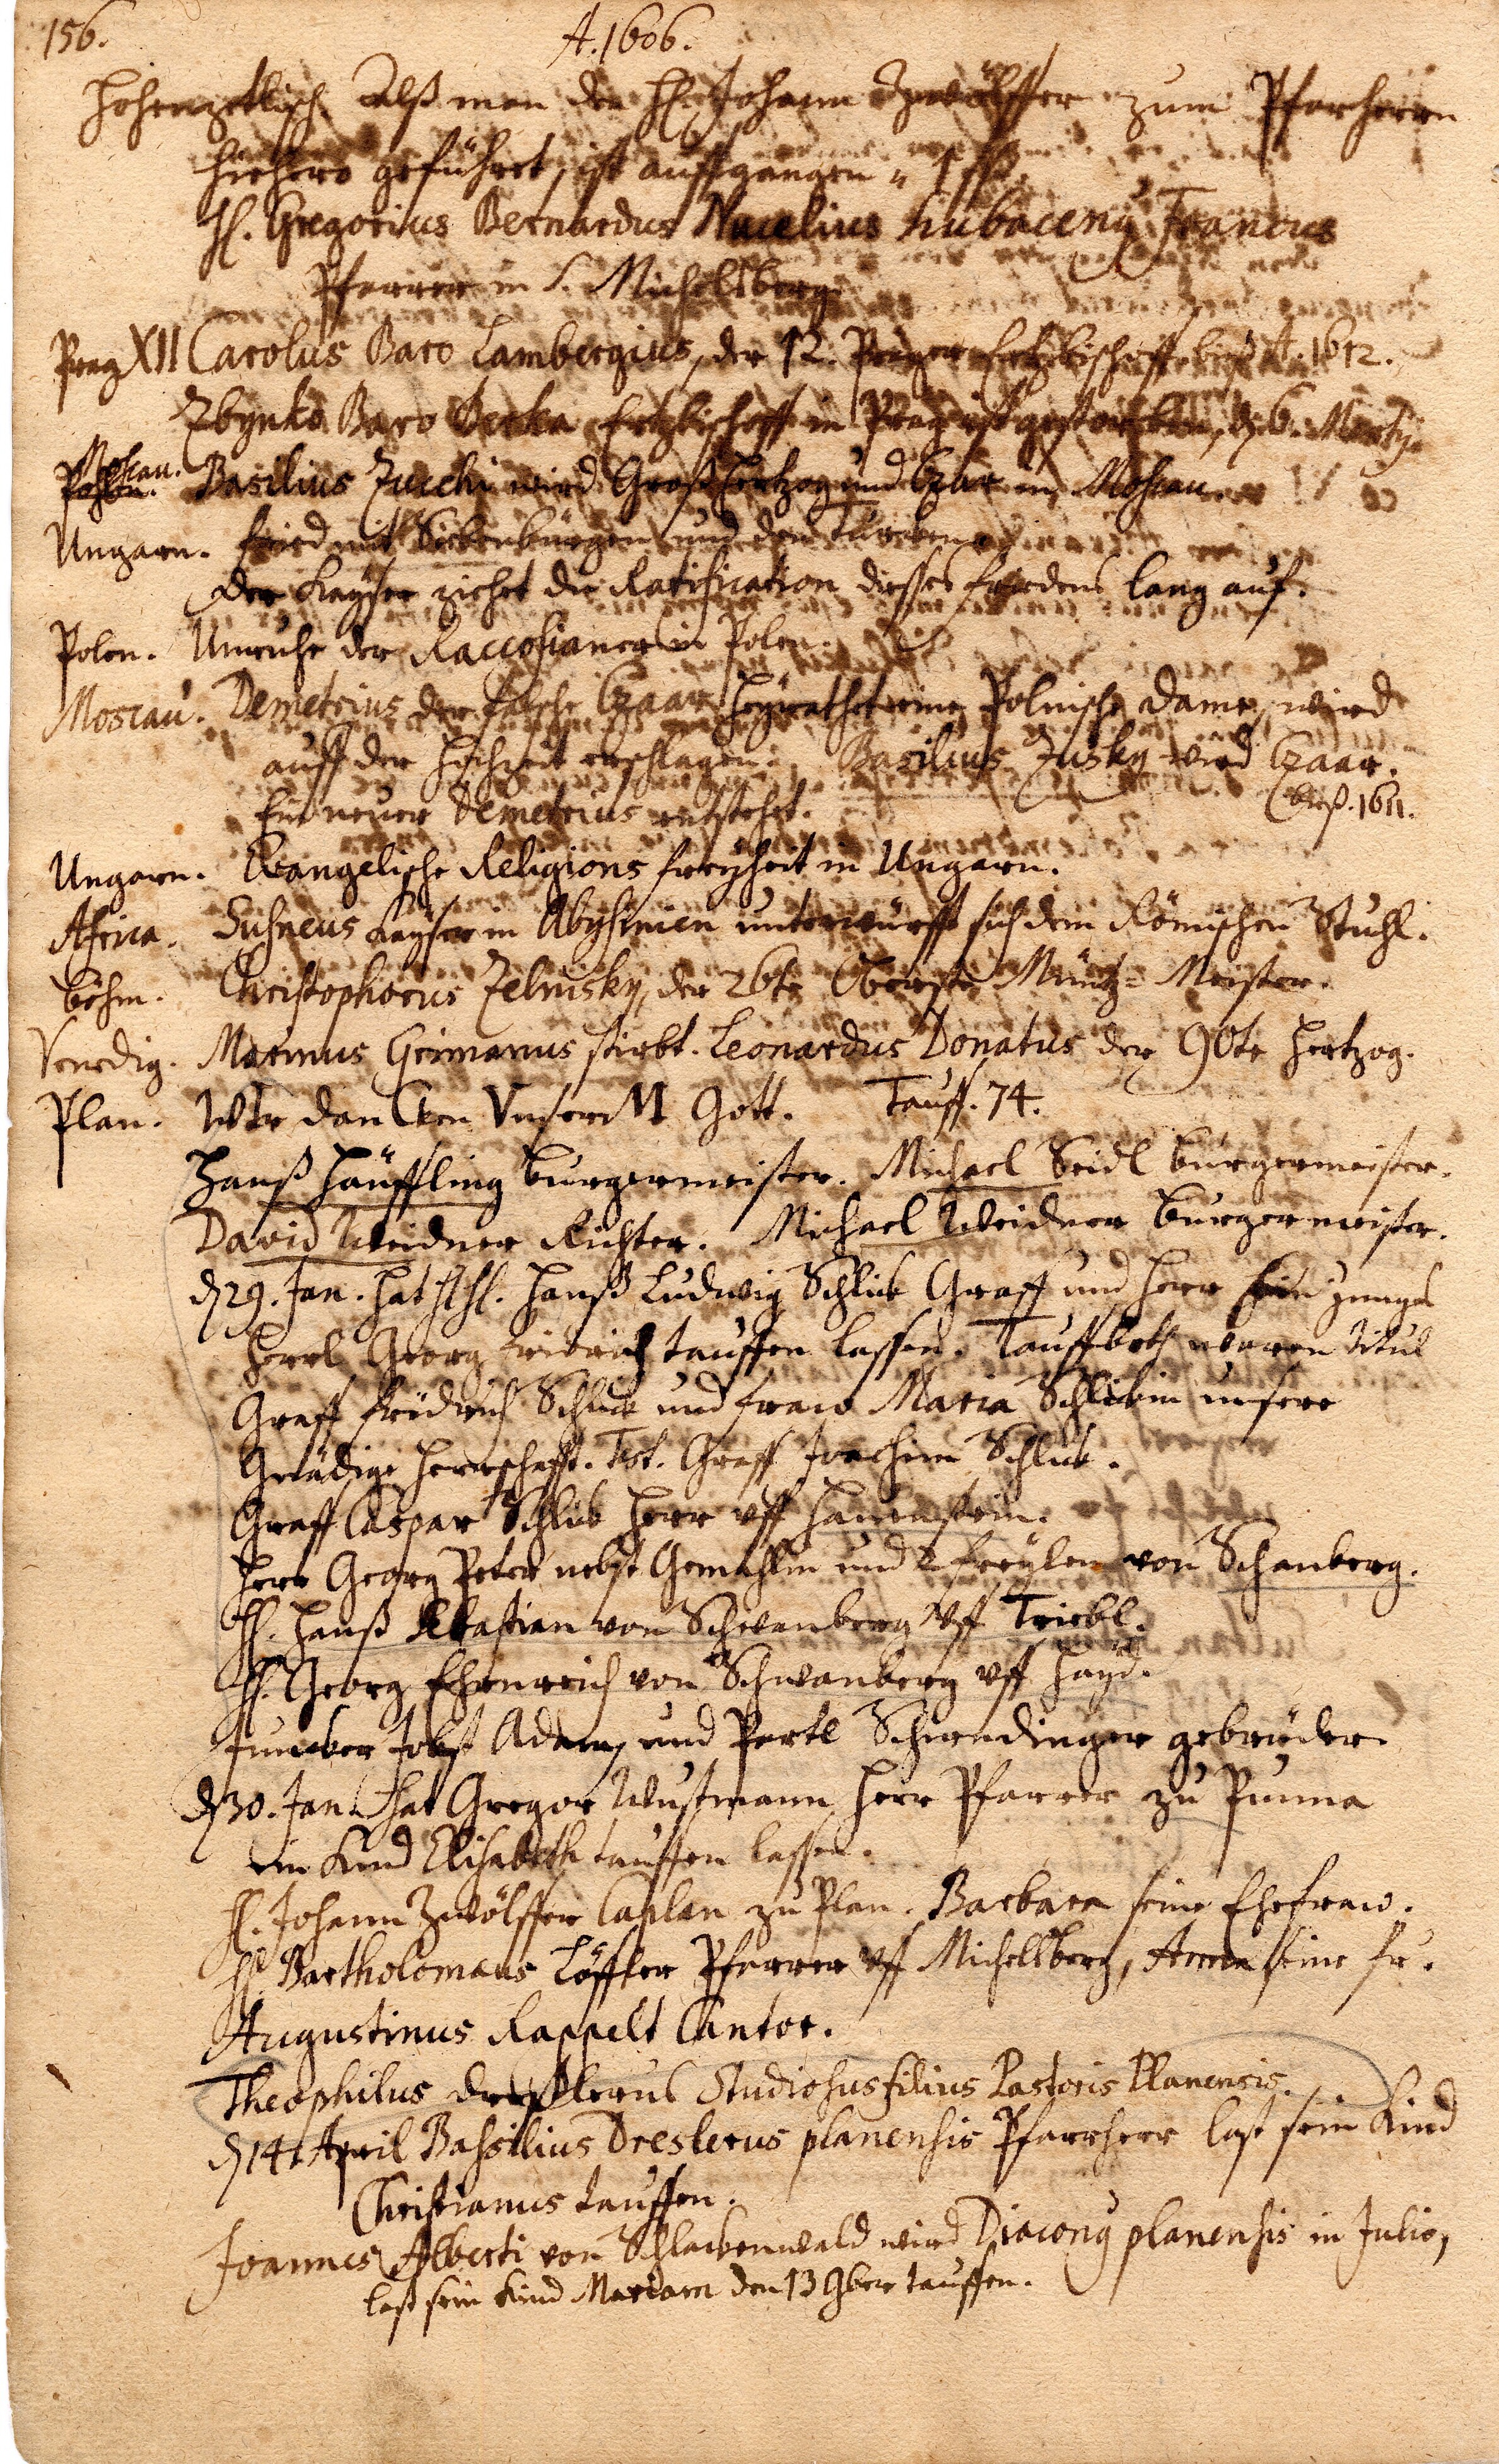 156. A. 1606.
Hohenzetlisch. Alß man den H. Johann Zwölffer zum Pfarherrn
hiehero geführet, ist auffgangen
H. Gregorius Bernardus Francus
Pfarrer in S. Michelsberg
Prag XII Carolus Baro Lambergius, der 12. Prager Ertzbischoff biß A. 1612.
Zbynko Baro Berka Ertzbischoff in Prag ist gestorben, d. 6. Martij.
Moscau. Basilius Zucchi wird Großhertzog und Czar in Moscau.
Ungarn. Fried mit Siebenbürgen und den Türcken.
Der Kayser ziehet die Ratification dieses friedens lang auf.
Polen. Unruhe der Raccosianer in Polen.
Moscau. Demetrius der falsche Czaar heyrathet eine Polnische Dame, wird
auff der Hochzeit erschlagen. Basilius Zusky wird Czaar.
Ein neuer Demetrius entstehet. biß. 1611.
Ungarn. Evangelische Religions freyheit in Ungarn.
Africa. Susneus Kayser in Abyssinien unterwürfft sich dem Römischen Stuhl.
böhm. Christophorus Zelnisky, der 26te Oberste Müntz-Meister.
Venedig. Marinus Grimanus stirbt. Leonardus Donatus der 90te Hertzog.
Plan. WIr danCken VnsereM Gott. Tauff. 74.
Hanß Häuffling burgermeister. Michael Seidl burgermeister.
David Weidner Richter. Michael Weidner burgermeister.
d 29. Jan. hat Hanß Ludwig Schlick Graff und Herr sein junges
Herrl Georg Fridrich tauffen lassen. Tauffbeth waren Titul
Graff fridrich Schlick und fraw Maria Schlickin unsere
Gnädige Herrschafft. Test. Graff Joachim Schlick.
Graff Caspar Schlick Herr vff Hauenstein.
Herr Georg Peter nebst Gemahlin und 2 freylen von Schanberg.
H. Hanß Sebastian von Schwanberg vff Triebl.
H. Georg Ehrnreich von Schwanberg vff Hayd.
Juncker Jobst Adam und Pertl Schirndinger gebrüder.
d 30. Jan. hat Gregor Wustmann Herr Pfarrer zu Punna
ein Kind Elisabeth tauffen lassen.
H. Johann Zwölffer Caplan zu Plan. Barbara seine Ehefraw.
H. Bartholomaeus Löffler Pfarrer vff Michelsberg, Anna seine fr.
Augustinus Rappelt Cantor.
Theophilus Dresslerus Studiosus filius Pastoris Planensis.
d 14. April Bassilius Dreslerus planensis Pfarrherr last sein Kind
Christianus tauffen.
Joannes Alberti von Schlackenwald wird Diaconus planensis in Julio,
last sein Kind Mariam den 13 9ber tauffen.